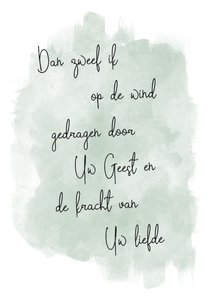 Dan zweef ik
op de wind
gedragen door
Uw Geest en
de kracht van
Uw liefde